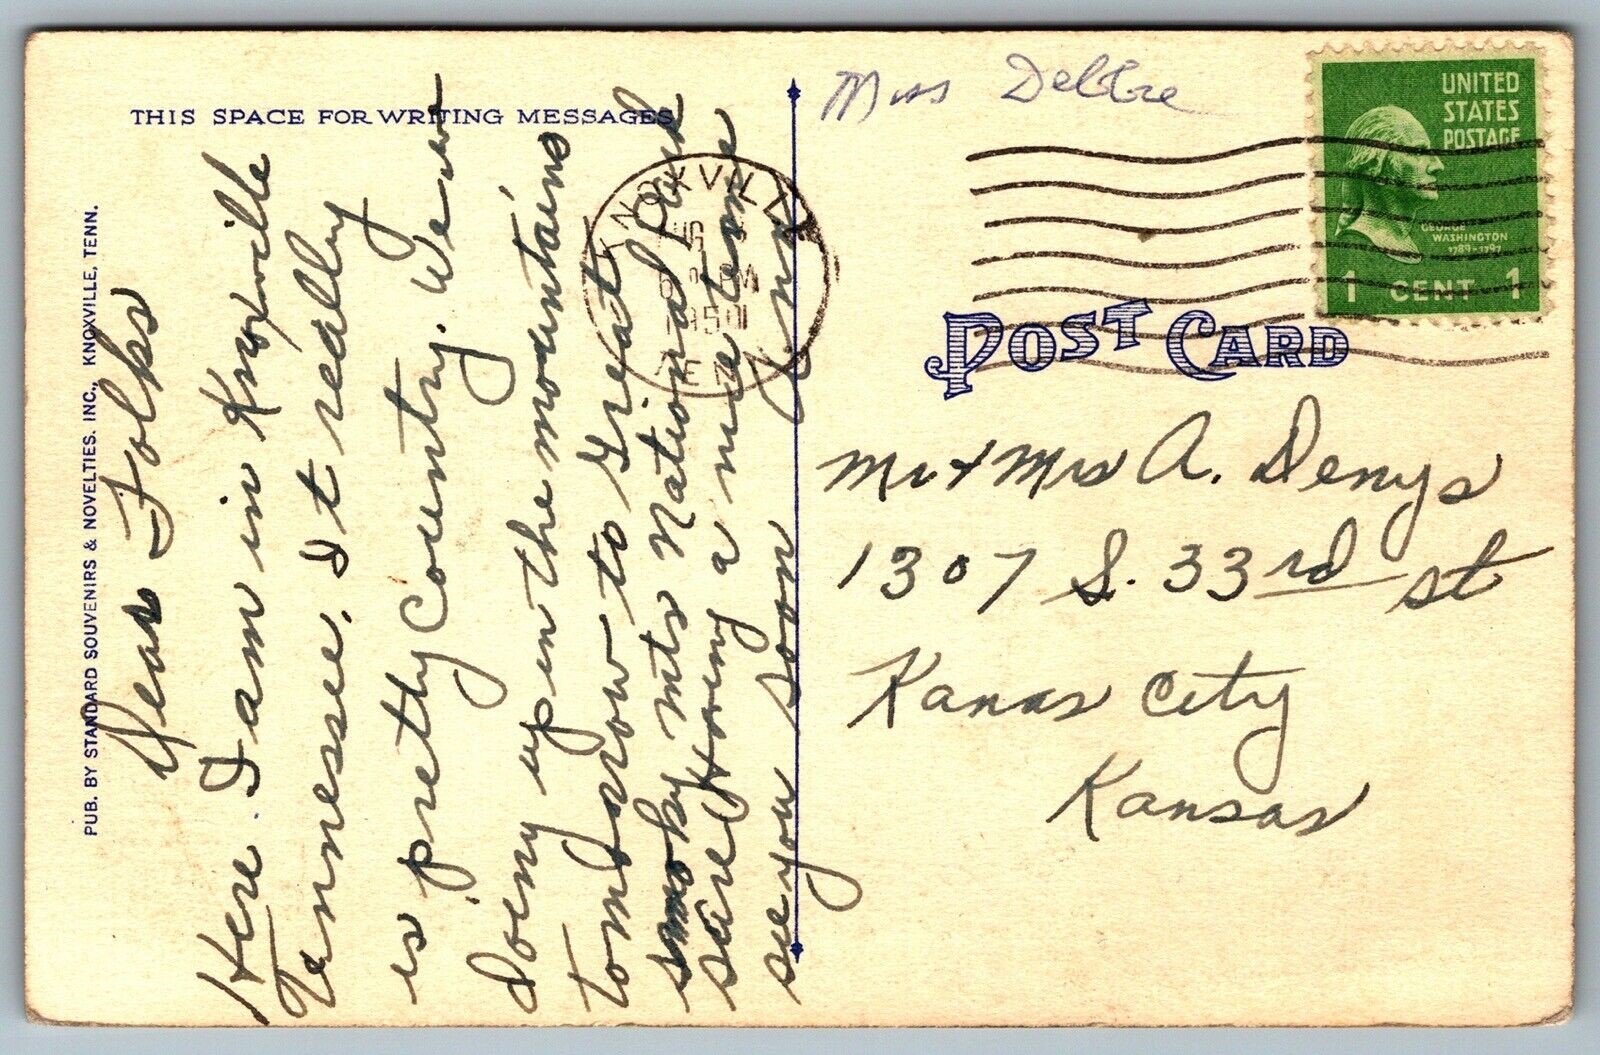 THIS SPACE FOR WRITING MESSAGES
PUB. BY STANDARD SOUVENIRS & NOVELTIES. INC., KNOXVILLE, TENN.
Dear Folks
Here. I am in Knoxville
Tennessee. It really
is pretty Country. We are
Doeing up in the mountains
tomorrow to Great
smoky mts National Park
sure Having a nice time
see you soon
KNOXVILLE
AUG
PM
1950
TENN
Miss Debbie
UNITED
STATES
POSTAGE
GEORGE
WASHINGTON
1789-1797
1 CENT 1
POST CARD
Mr + Mrs A. Denys
1307 S. 33rd st
Kanas City
Kansas